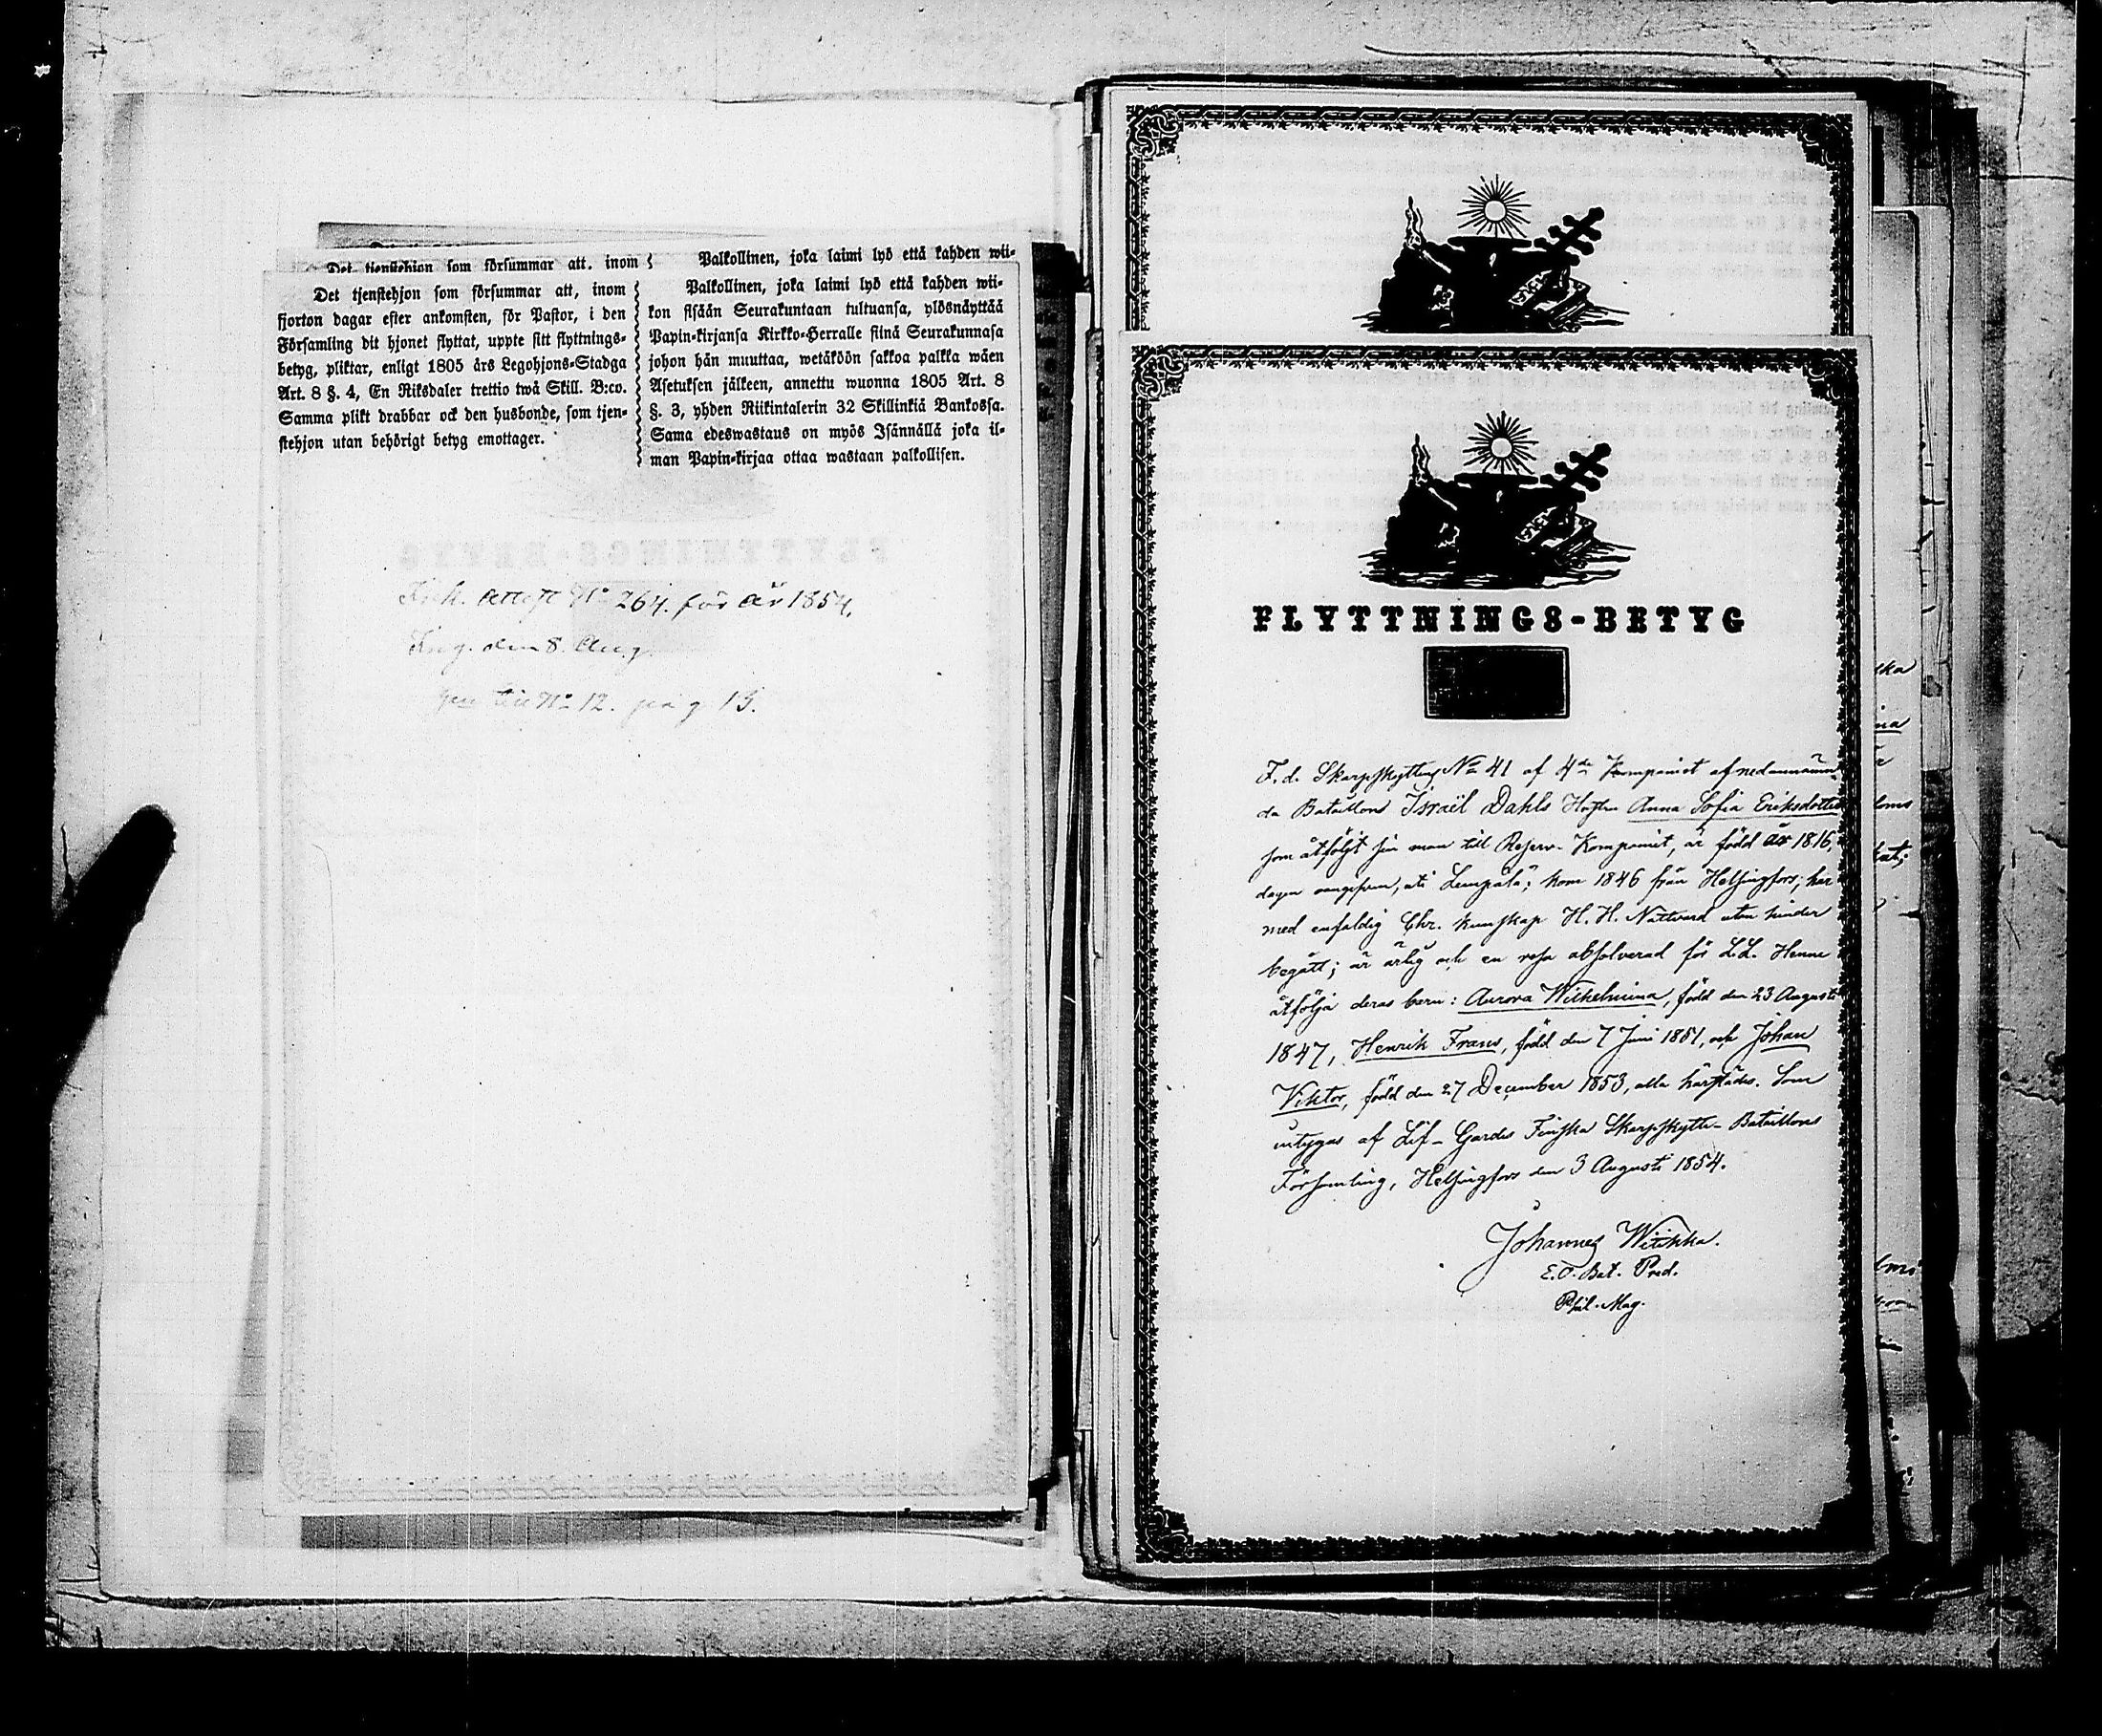 Det tjenstehjon som försummar att, inom
Det tjenstehjon som försummar att, inom
fjorton dagar efter ankomsten, för Pastor, i den
Församling dit hjonet flyttat, uppte sitt flyttnings-
betyg, pliktar, enligt 1805 års Legohjons-Stadga
Art. 8 §. 4, En Riksdaler trettio twå Skill. B:co.
Samma plikt drabbar ock den husbonde, som tjen-
stehjon utan behörigt betyg emottager.
Palkollinen, joka laimi lyö että kahden wii-
Palkollinen, joka laimi lyö että kahden wii-
kon sisään Seurakuntaan tultuansa, ylösnäyttää
Papin-kirjansa Kirkko-Herralle siinä Seurakunnasa
johon hän muuttaa, wetäköön sakkoa palkka wäen
Asetuksen jälkeen, annettu wuonna 1805 Art. 8
§. 3, yhden Riikintalerin 32 Skillinkiä Bankossa.
Sama edeswastaus on myös Isännällä joka il-
man Papin-kirjaa ottaa wastaan palkollisen.
attest No 264. för år 1854.
Ing. den 8. Aug.
No 12. pag 13.
FLYTTNINGS-BETYG
F. d. Skarpskytten No 41 af 4de Kompaniet af nedannämn
da Bataillons Israël Dahls Hustru Anna Sofia Eriksdotter
som åtföljt sin man till Reserv-Kompaniet, är född år 1816,
dagen oangifven, uti Lempälä; kom 1846 från Helsingfors; har
med enfaldig Chr. kunskap H. H. Nattvard utan hinder
begått; är ärlig och en resa absolverad för L.L. Henne
åtfölja deras barn: Aurora Wilhelmina, född den 23 Augusti
1847, Henrik Frans, född den 7 Juni 1851, och Johan
Viktor, född den 27 December 1853, alla härstädes. Som
intygas af Lif-Gardes Finska Skarpskytte-Bataillons
Församling, Helsingfors den 3 Augusti 1854.
Johannes Witikka.
E.O. Bat. Pred.
Phil. Mag.